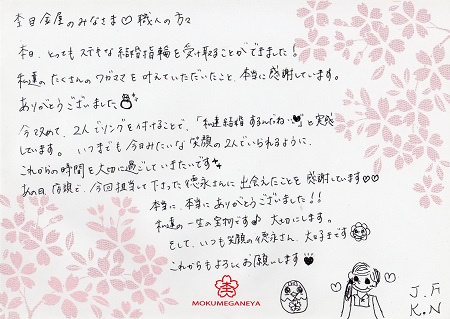 杢目金屋のみなさま♡ 職人の方々
本日、とってもステキな結婚指輪を受け取ることができました!
私達のたくさんのワガママを叶えていただいたこと、本当に感謝しています。
ありがとうございました
今改めて、2人でリングを付けることで、「私達結婚するんだね」と実感
しています。いつまでも今日みたいな笑顔の2人でいられるように、
これからの時間を大切に過ごしていきたいです
あの日、店頭で、今回担当して下さった徳永さんに出会えたことを感謝しています♡♡
本当に、本当にありがとうございました!!
私達の一生の宝物です♪ 大切にします。
そして、いつも笑顔の徳永さん、大好きです
これからもよろしくお願いします♥
MOKUMEGANEYA
J.F
K.N